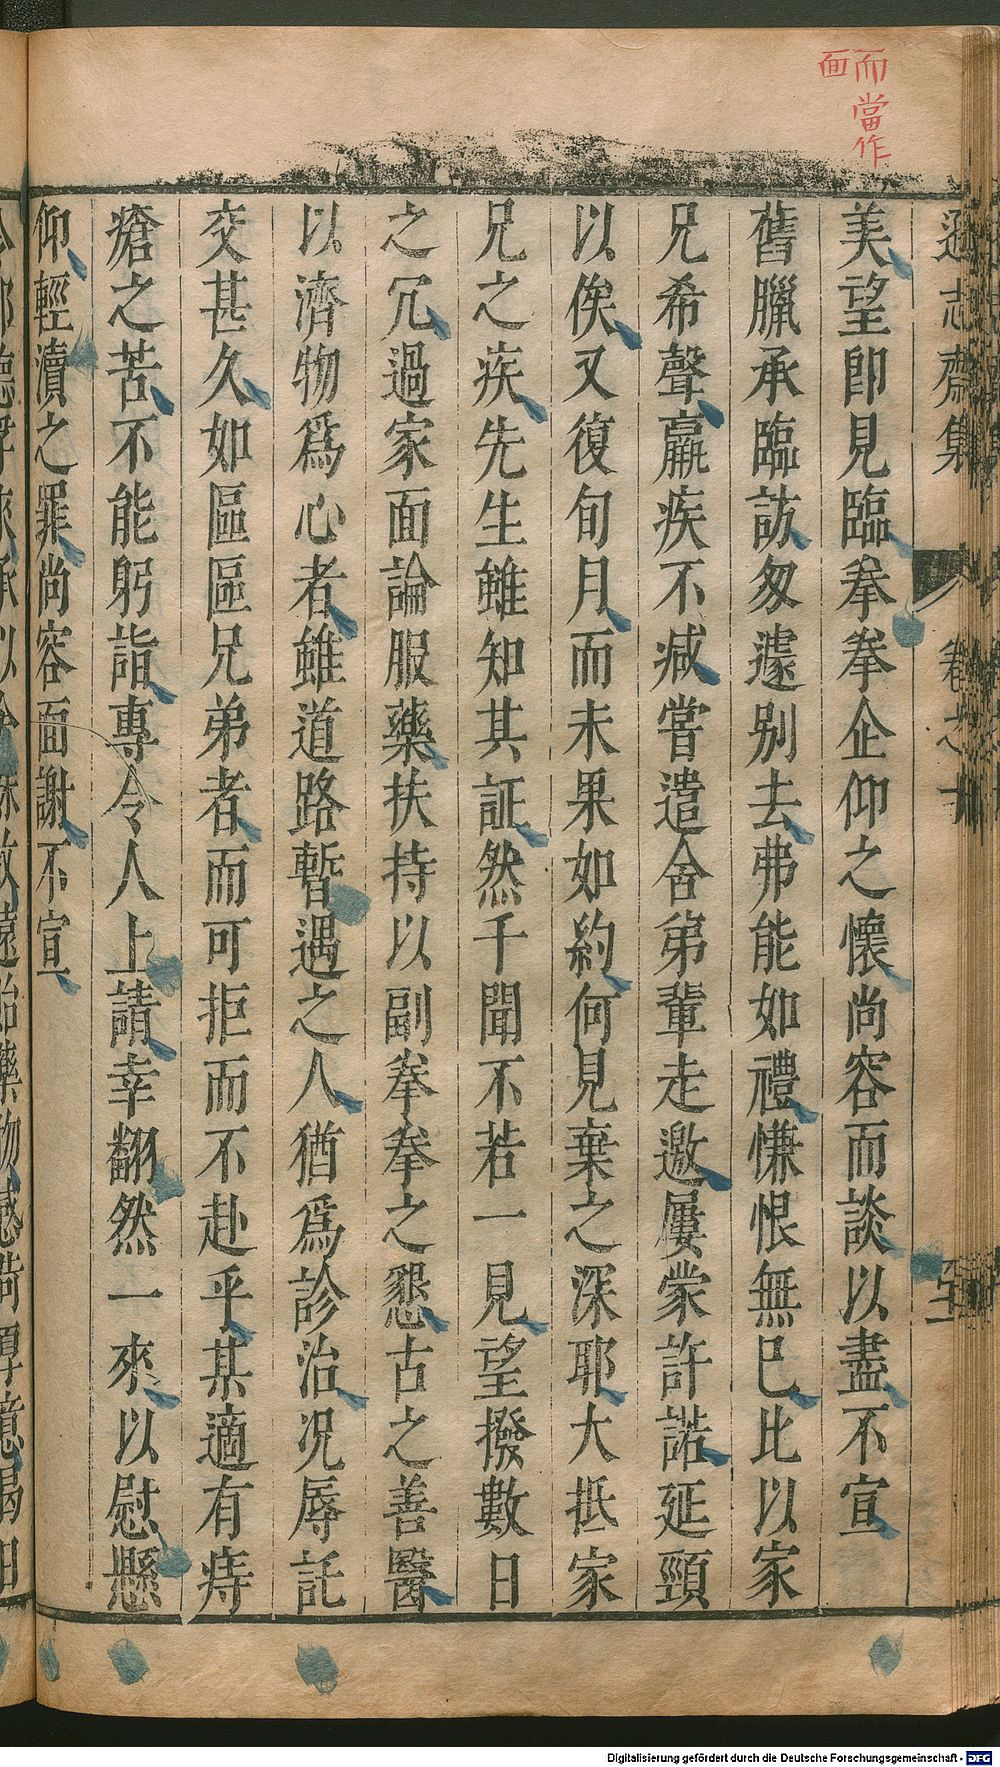 而當作
面
遜志齋集
卷之十
美望即見臨拳拳企仰之懷尚容而談以盡不宣
舊臘承臨訪匆遽别去弗能如禮慊恨無已比以家
兄希聲羸疾不減嘗遣舍弟輩走邀屢蒙許諾延頸
以俟又復旬月而未果如約何見棄之深耶大抵家
兄之疾先生雖知其証然千聞不若一見望撥數日
之冗過家面論服藥扶持以副拳拳之懇古之善醫
以濟物爲心者雖道路暫遇之人猶爲診治况辱託
交甚久如區區兄弟者而可拒而不赴乎某適有痔
瘡之苦不能躬詣專令人上請幸翻然一來以慰懸
仰輕瀆之罪尚容面謝不宣
Digitalisierung gefördert durch die Deutsche Forschungsgemeinschaft - DFG